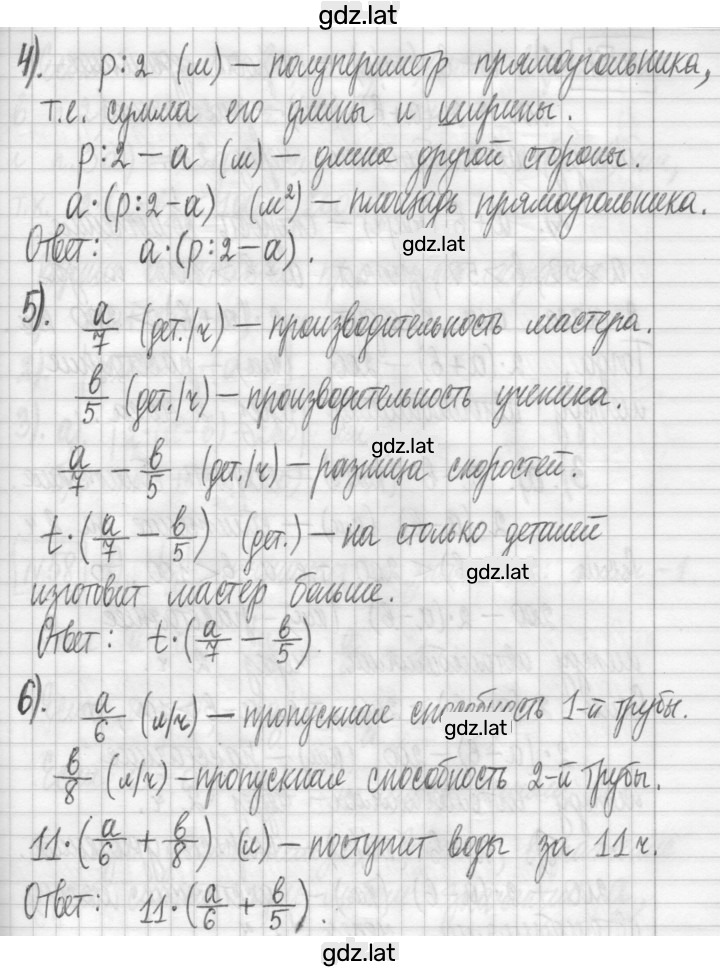 gdz.lat
4). p:2 (м) — полупериметр прямоугольника,
т.е. сумма его длины и ширины.
p:2 — a (м) — длина другой стороны.
a·(p:2-a) (м²) — площадь прямоугольника.
Ответ: a·(p:2-a).
gdz.lat
5). a/7 (дет./ч) — производительность мастера.
в/5 (дет./ч) — производительность ученика.
gdz.lat
a/7 - в/5 (дет./ч) — разница скоростей.
t·(a/7 - в/5) (дет.) — на столько деталей
gdz.lat
изготовит мастер больше.
Ответ: t·(a/7 - в/5)
6). a/6 (л/ч) — пропускная способность 1-й трубы.
gdz.lat
в/8 (л/ч) — пропускная способность 2-й трубы.
11·(a/6 + в/8) (л) — поступит воды за 11 ч.
Ответ: 11·(a/6 + в/5).
gdz.lat